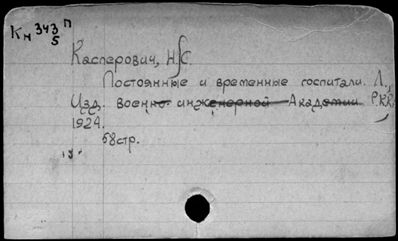 Кн 343 П
5
Касперович, Н.С.
Постоянные и временные госпитали. Л.,
Изд. Военно-инженерной Академии РККА,
1924.
58стр.